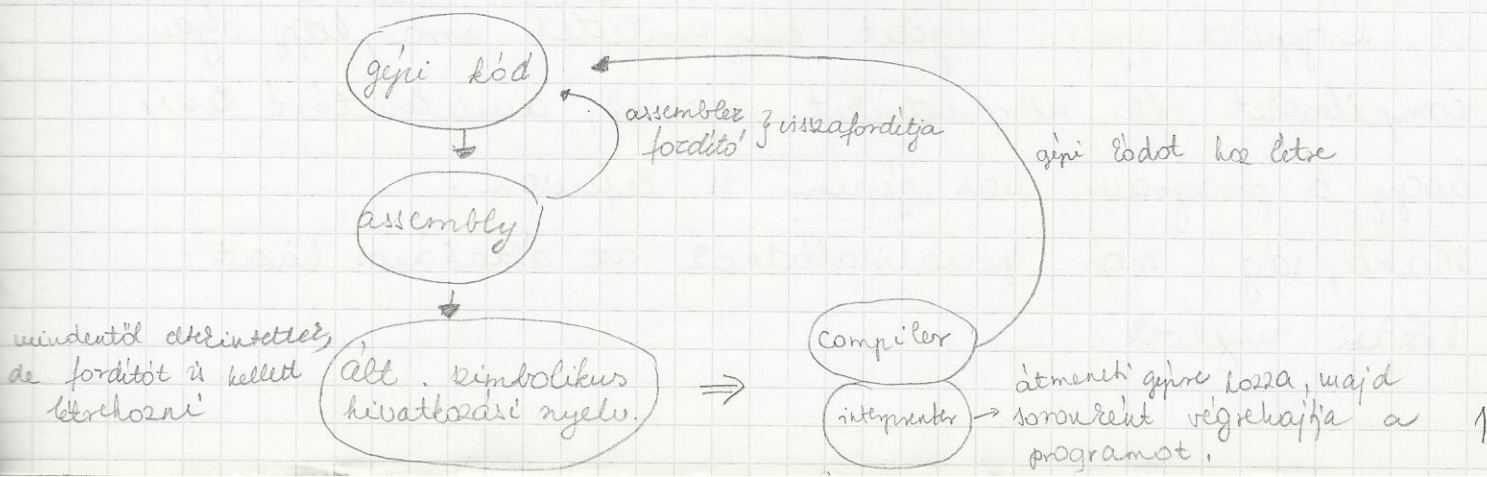 gépi kód
assembler
fordító } visszafordítja
gépi kódot hoz létre
assembly
mindentől eltekintettek,
de fordítót is kellett
létrehozni
ált. szimbolikus
hivatkozási nyelv.
compiler
interprenter
átmeneti gépire hozza, majd
soronként végrehajtja a
programot.
1